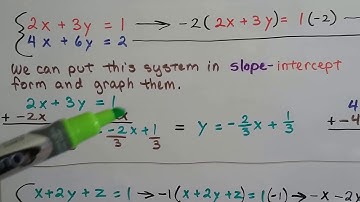 2x + 3y = 1 → -2(2x + 3y) = 1(-2)
4x + 6y = 2
We can put this system in slope-intercept
form and graph them.
2x + 3y = 1
+ -2x
-2x/3 + 1/3 = y = -2/3x + 1/3
x + 2y + z = 1 → -1(x + 2y + z) = 1(-1) → -x - 2